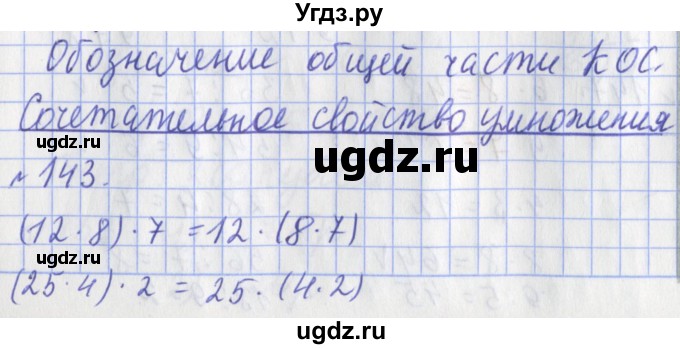 Угдз.ру
Обозначение общей части КОС.
Сочетательное свойство умножения
ugdz.ru
ugdz.ru
№ 143.
(12 · 8) · 7 = 12 · (8 · 7)
ugdz.ru
(25 · 4) · 2 = 25 · (4 · 2)
ugdz.ru